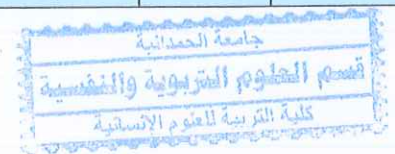 جامعة الحمدانية
قسم العلوم التربوية والنفسية
كلية التربية للعلوم الإنسانية